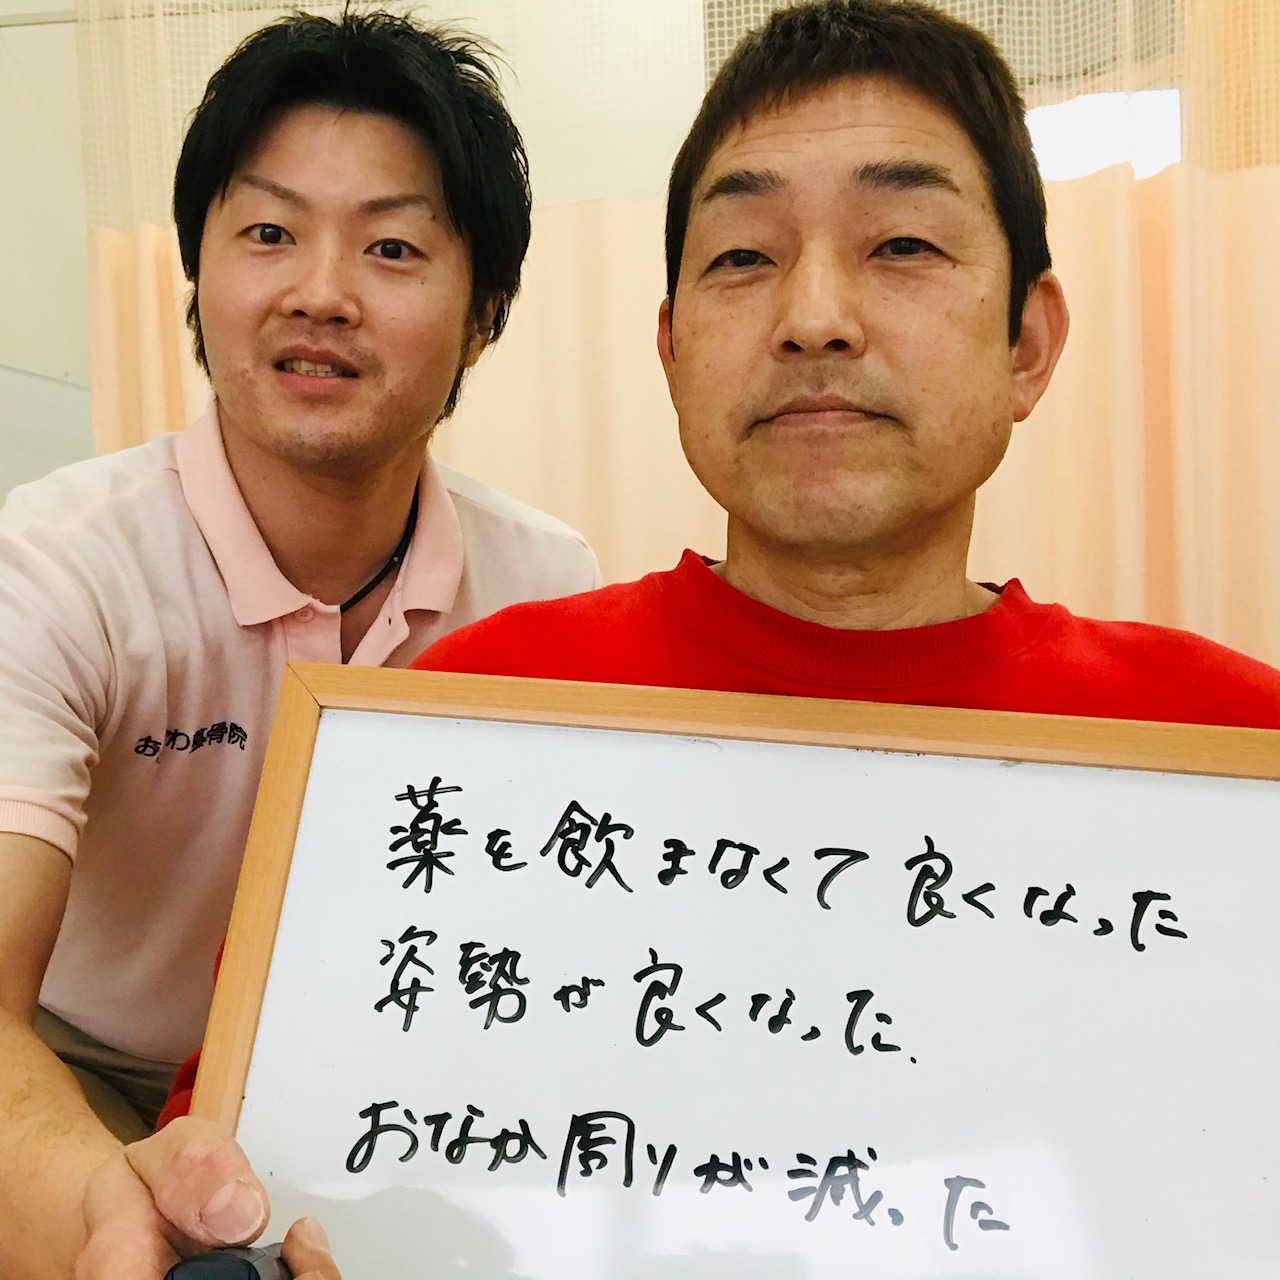 整骨院
薬を飲まなくて良くなった
姿勢が良くなった.
おなか周りが減った